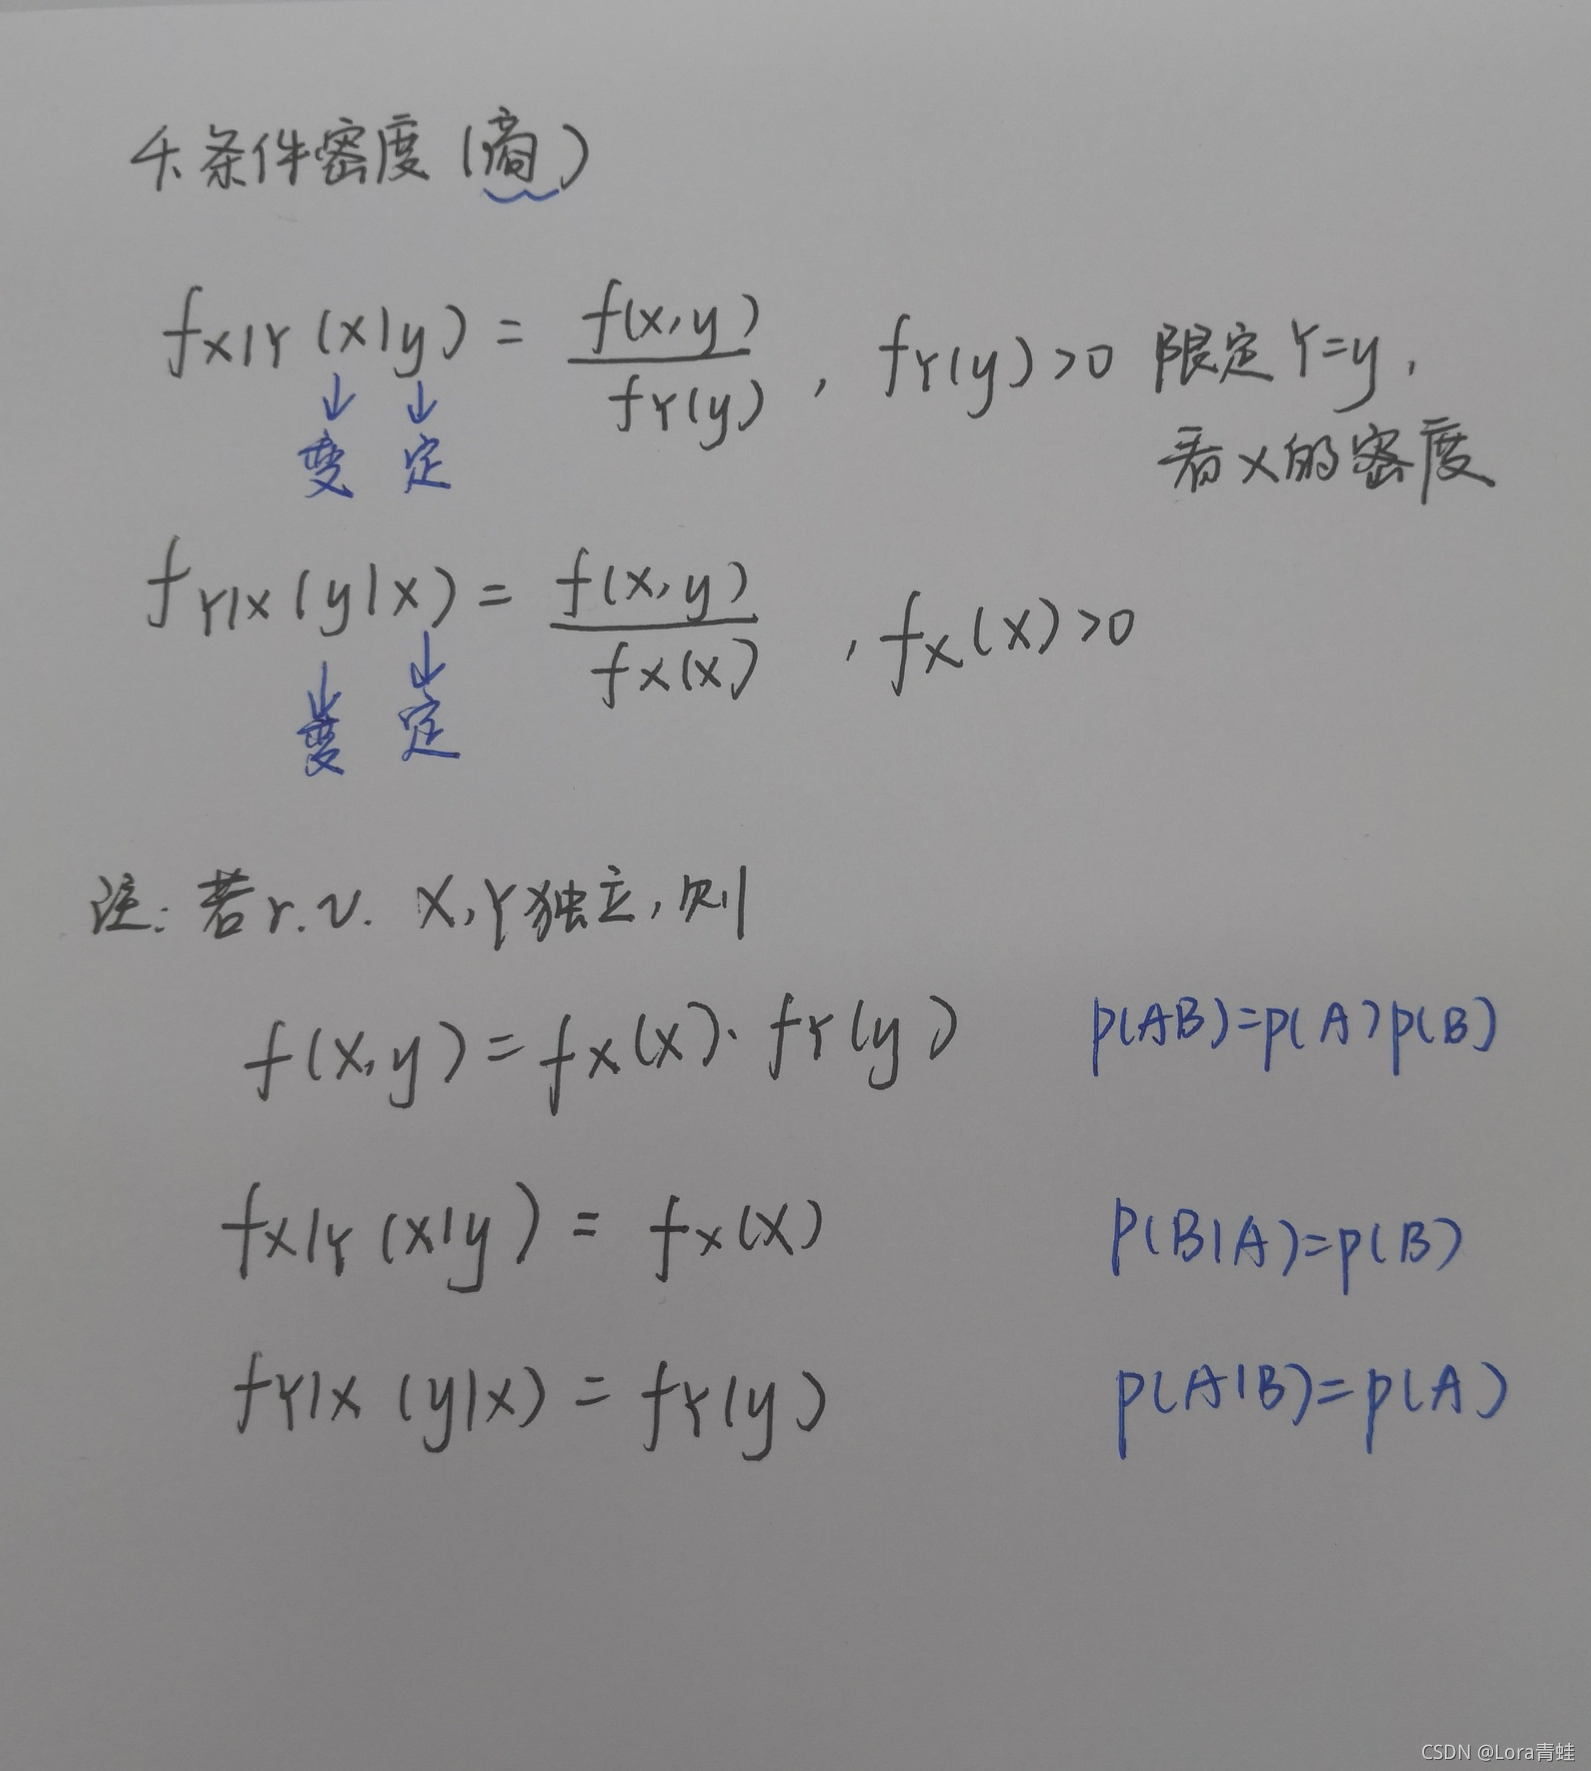 4、条件密度(商)
fX|Y(x|y) = f(x,y)/fY(y) , fY(y)>0 限定Y=y,
↓ ↓
变 定
看X的密度
fY|X(y|x) = f(x,y)/fX(x) , fX(x)>0
↓ ↓
变 定
注:若r.v. X,Y独立,则
f(x,y)=fX(x)·fY(y) P(AB)=P(A)P(B)
fX|Y(x|y) = fX(x) P(B|A)=P(B)
fY|X(y|x) = fY(y) P(A|B)=P(A)
CSDN @Lora青蛙